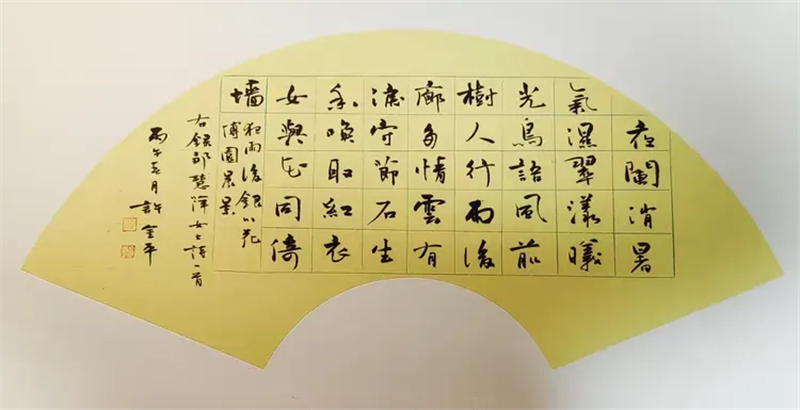 夜闌消暑
氣濕翠漾曦
光鳥語風前
樹人行雨後
廊多情雲有
淚守節石生
香喚取紅衣
女與花同倚
墻
雨後銀川花
博園晨景
右録邵慧萍女士詩一首
丙午春月許金平